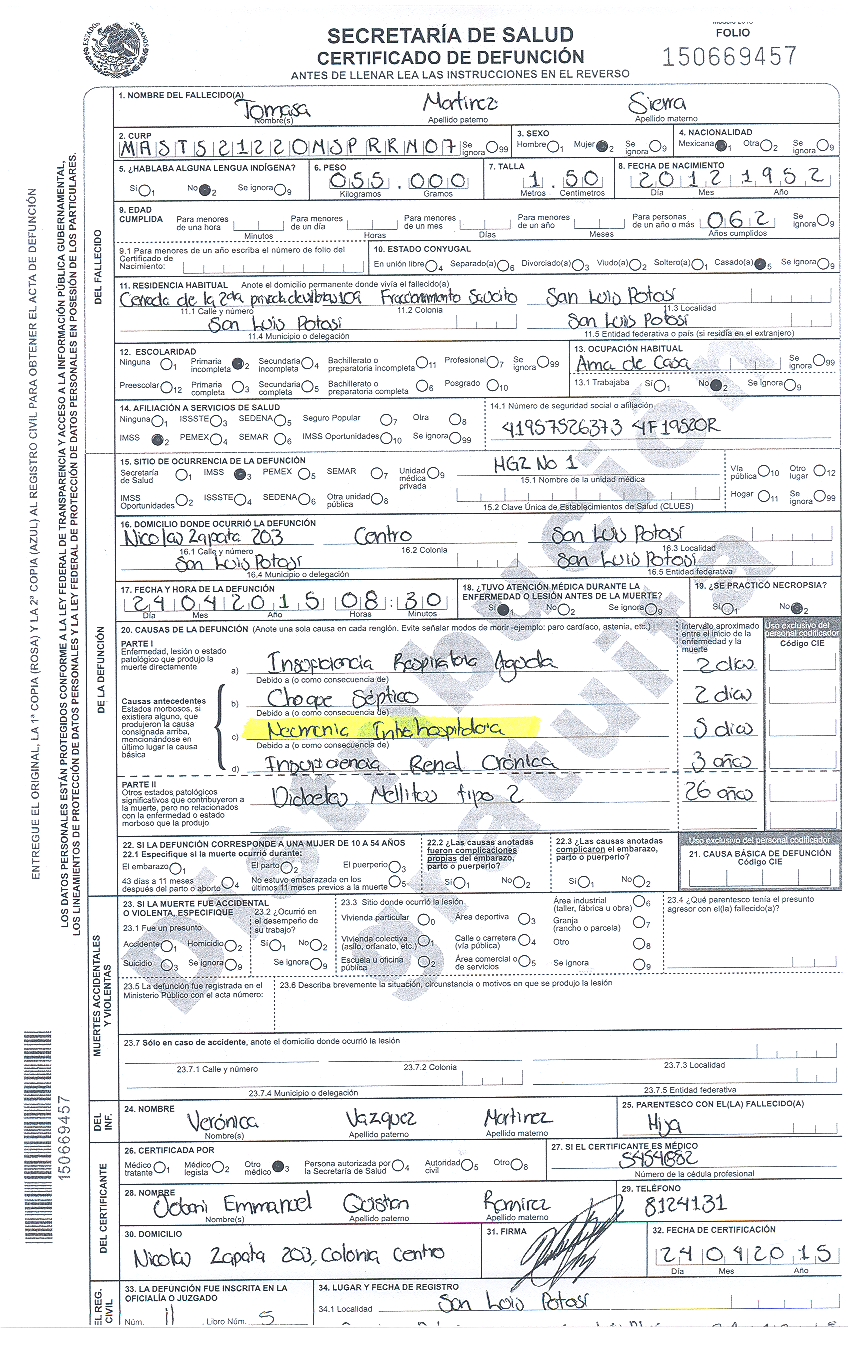 SECRETARÍA DE SALUD
CERTIFICADO DE DEFUNCIÓN
ANTES DE LLENAR LEA LAS INSTRUCCIONES EN EL REVERSO
FOLIO
150669457
ENTREGUE EL ORIGINAL, LA 1ª COPIA (ROSA) Y LA 2ª COPIA (AZUL) AL REGISTRO CIVIL PARA OBTENER EL ACTA DE DEFUNCIÓN
LOS DATOS PERSONALES ESTÁN PROTEGIDOS CONFORME A LA LEY FEDERAL DE TRANSPARENCIA Y ACCESO A LA INFORMACIÓN PÚBLICA GUBERNAMENTAL,
LOS LINEAMIENTOS DE PROTECCIÓN DE DATOS PERSONALES Y LA LEY FEDERAL DE PROTECCIÓN DE DATOS PERSONALES EN POSESIÓN DE LOS PARTICULARES.
150669457
DEL FALLECIDO
1. NOMBRE DEL FALLECIDO(A) Tomasa Martinez Sierra
Nombre(s) Apellido paterno Apellido materno
2. CURP MAST521220MSPRRM07 Se ignora 99
3. SEXO Hombre 1 Mujer 2 Se ignora 9
4. NACIONALIDAD Mexicana 1 Otra 2 Se ignora 9
5. ¿HABLABA ALGUNA LENGUA INDÍGENA? Sí 1 No 2 Se ignora 9
6. PESO 055.000 Kilogramos Gramos
7. TALLA 1.50 Metros Centímetros
8. FECHA DE NACIMIENTO 20 12 1952 Día Mes Año
9. EDAD CUMPLIDA Para menores de una hora Minutos Para menores de un día Horas Para menores de un mes Días Para menores de un año Meses Para personas de un año o más 062 Años cumplidos Se ignora 9
9.1 Para menores de un año escriba el número de folio del Certificado de Nacimiento:
10. ESTADO CONYUGAL
En unión libre 4 Separado(a) 6 Divorciado(a) 3 Viudo(a) 2 Soltero(a) 1 Casado(a) 5 Se ignora 9
11. RESIDENCIA HABITUAL Anote el domicilio permanente donde vivía el fallecido(a)
Fraccionamiento San Luis Potosí
11.1 Calle y número 11.2 Colonia 11.3 Localidad
San Luis Potosí San Luis Potosí
11.4 Municipio o delegación 11.5 Entidad federativa o país (si residía en el extranjero)
12. ESCOLARIDAD
Ninguna 1 Primaria incompleta 2 Secundaria incompleta 4 Bachillerato o preparatoria incompleta 11 Profesional 7 Se ignora 99
Preescolar 12 Primaria completa 3 Secundaria completa 5 Bachillerato o preparatoria completa 6 Posgrado 10
13. OCUPACIÓN HABITUAL
Ama de Casa Se ignora 99
13.1 Trabajaba Sí 1 No 2 Se ignora 9
14. AFILIACIÓN A SERVICIOS DE SALUD
Ninguna 1 ISSSTE 3 SEDENA 5 Seguro Popular 7 Otra 8
IMSS 2 PEMEX 4 SEMAR 6 IMSS Oportunidades 10 Se ignora 99
14.1 Número de seguridad social o afiliación
41957526373 4F1952OR
DE LA DEFUNCIÓN
15. SITIO DE OCURRENCIA DE LA DEFUNCIÓN
Secretaría de Salud 1 IMSS 3 PEMEX 5 SEMAR 7 Unidad médica privada 9
IMSS Oportunidades 2 ISSSTE 4 SEDENA 6 Otra unidad pública 8
HGZ No 1
15.1 Nombre de la unidad médica
15.2 Clave Única de Establecimientos de Salud (CLUES)
Vía pública 10 Otro lugar 12
Hogar 11 Se ignora 99
16. DOMICILIO DONDE OCURRIÓ LA DEFUNCIÓN
Nicolas Zapata 203 Centro San Luis Potosí
16.1 Calle y número 16.2 Colonia 16.3 Localidad
San Luis Potosí San Luis Potosí
16.4 Municipio o delegación 16.5 Entidad federativa
17. FECHA Y HORA DE LA DEFUNCIÓN
24 04 2015 08:30
Día Mes Año Horas Minutos
18. ¿TUVO ATENCIÓN MÉDICA DURANTE LA ENFERMEDAD O LESIÓN ANTES DE LA MUERTE?
Sí 1 No 2 Se ignora 9
19. ¿SE PRACTICÓ NECROPSIA?
Sí 1 No 2
20. CAUSAS DE LA DEFUNCIÓN (Anote una sola causa en cada renglón. Evite señalar modos de morir -ejemplo: paro cardíaco, astenia, etc.)
Intervalo aproximado entre el inicio de la enfermedad y la muerte
Uso exclusivo del personal codificador
Código CIE
PARTE I
Enfermedad, lesión o estado patológico que produjo la muerte directamente
a) Insuficiencia Respiratoria Aguda 2 días
Debido a (o como consecuencia de)
Causas antecedentes
Estados morbosos, si existiera alguno, que produjeron la causa consignada arriba, mencionándose en último lugar la causa básica
b) Choque Séptico 2 días
Debido a (o como consecuencia de)
c) Neumonia Intrahospitalaria 5 días
Debido a (o como consecuencia de)
d) Insuficiencia Renal Crónica 3 años
PARTE II
Otros estados patológicos significativos que contribuyeron a la muerte, pero no relacionados con la enfermedad o estado morboso que la produjo
Diabetes Mellitus tipo 2 26 años
22. SI LA DEFUNCIÓN CORRESPONDE A UNA MUJER DE 10 A 54 AÑOS
22.1 Especifique si la muerte ocurrió durante:
El embarazo 1 El parto 2 El puerperio 3
43 días a 11 meses después del parto o aborto 4 No estuvo embarazada en los últimos 11 meses previos a la muerte 5
22.2 ¿Las causas anotadas fueron complicaciones propias del embarazo, parto o puerperio?
Sí 1 No 2
22.3 ¿Las causas anotadas complicaron el embarazo, parto o puerperio?
Sí 1 No 2
Uso exclusivo del personal codificador
21. CAUSA BÁSICA DE DEFUNCIÓN
Código CIE
MUERTES ACCIDENTALES Y VIOLENTAS
23. SI LA MUERTE FUE ACCIDENTAL O VIOLENTA, ESPECIFIQUE
23.1 Fue un presunto
Accidente 1 Homicidio 2
Suicidio 3 Se ignora 9
23.2 ¿Ocurrió en el desempeño de su trabajo?
Sí 1 No 2
Se ignora 9
23.3 Sitio donde ocurrió la lesión.
Vivienda particular 0 Área deportiva 3 Área industrial (taller, fábrica u obra) 6
Vivienda colectiva (asilo, orfanato, etc.) 1 Calle o carretera (vía pública) 4 Granja (rancho o parcela) 7
Escuela u oficina pública 2 Área comercial o de servicios 5 Otro 8
Se ignora 9
23.4 ¿Qué parentesco tenía el presunto agresor con el(la) fallecido(a)?
23.5 La defunción fue registrada en el Ministerio Público con el acta número:
23.6 Describa brevemente la situación, circunstancia o motivos en que se produjo la lesión
23.7 Sólo en caso de accidente, anote el domicilio donde ocurrió la lesión
23.7.1 Calle y número 23.7.2 Colonia 23.7.3 Localidad
23.7.4 Municipio o delegación 23.7.5 Entidad federativa
DEL INF.
24. NOMBRE Verónica Vazquez Martinez
Nombre(s) Apellido paterno Apellido materno
25. PARENTESCO CON EL(LA) FALLECIDO(A)
Hija
DEL CERTIFICANTE
26. CERTIFICADA POR
Médico tratante 1 Médico legista 2 Otro médico 3 Persona autorizada por la Secretaría de Salud 4 Autoridad civil 5 Otro 8
27. SI EL CERTIFICANTE ES MÉDICO
Número de la cédula profesional
28. NOMBRE Emmanuel Ramirez
Nombre(s) Apellido paterno Apellido materno
29. TELÉFONO
8124131
30. DOMICILIO
Nicolas Zapata 203, Colonia Centro
31. FIRMA
32. FECHA DE CERTIFICACIÓN
24 04 2015
Día Mes Año
EL REG. CIVIL
33. LA DEFUNCIÓN FUE INSCRITA EN LA OFICIALÍA O JUZGADO
Núm. 11 Libro Núm. 5
34. LUGAR Y FECHA DE REGISTRO
34.1 Localidad San Luis Potosí